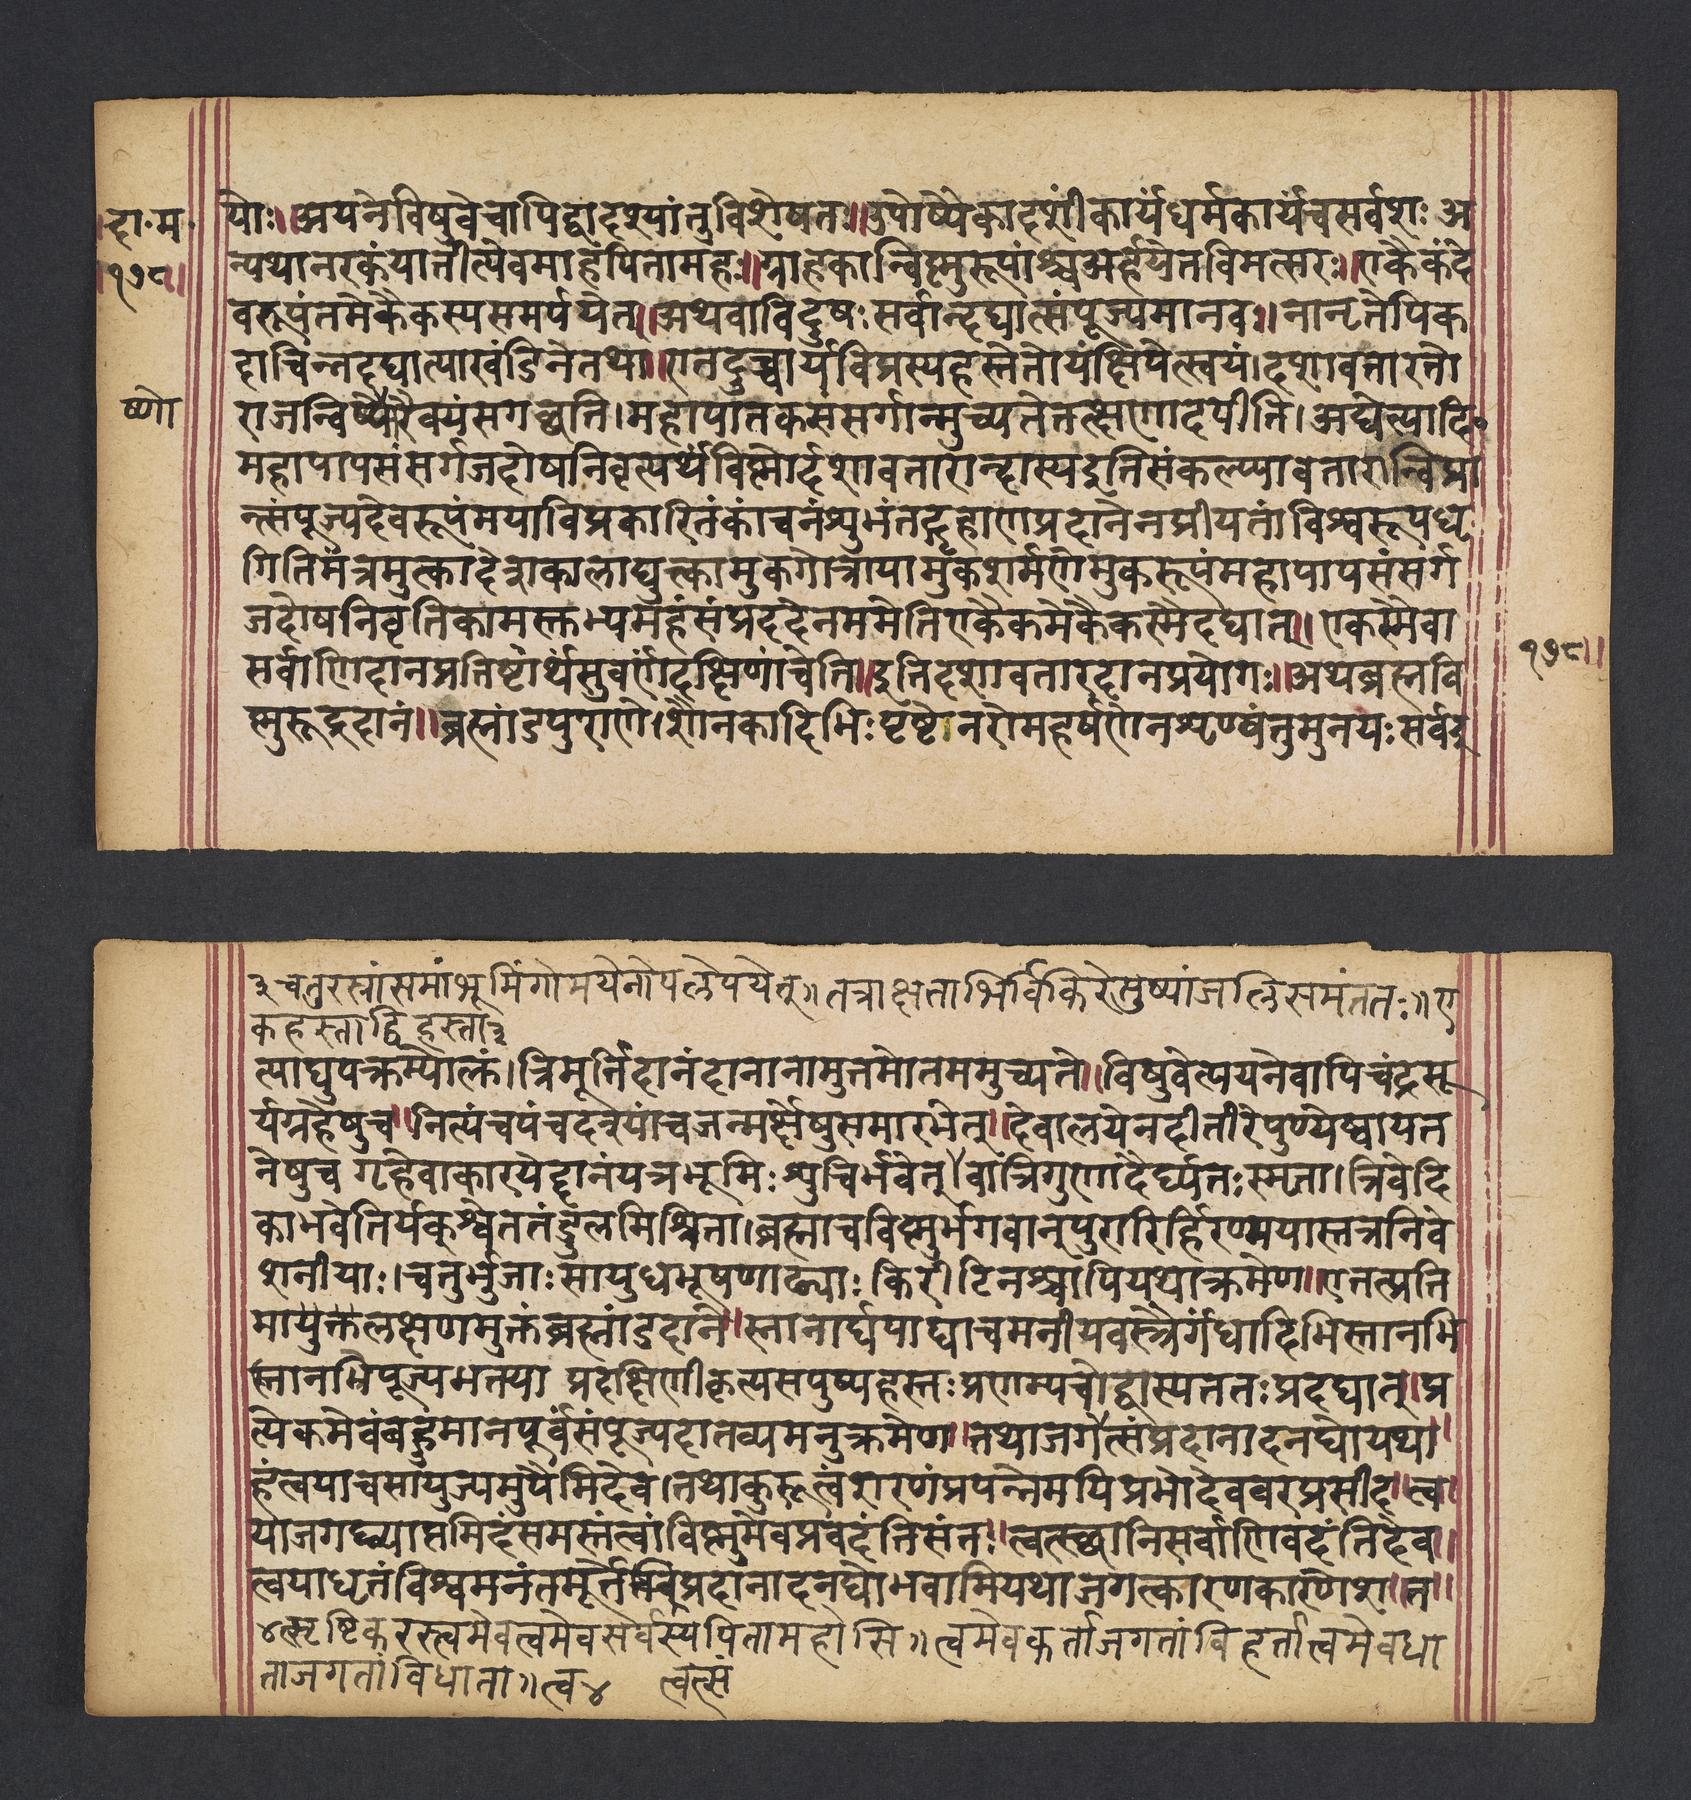 दा॰म॰
१७८॥
योः॥अयनेविषुवेचापिद्वादश्यांतुविशेषतः॥उपोष्यैकादशींकार्यंधर्मकार्यंचसर्वशः अ
न्यथानरकंयातीत्येवमाहपितामहः॥ग्राहकान्विष्णुरूपांश्चअर्हयेतविमत्सरः॥एकैकंदे
वरूपंतमेकैकस्यसमर्पयेत्॥अथवाविदुषःसर्वान्दद्यात्संपूज्यमानवः॥नानृतेपिक
दाचिन्नदद्यात्पाखंडिनेतथा॥एतदुच्चार्यविप्रस्यहस्तेतोयंक्षिपेत्स्वयं।दशावतारतो
ष्णो
राजन्विष्णोरैक्यंसगच्छति।महापातकसंसर्गान्मुच्यतेतत्क्षणादपीति।अद्येत्यादि॰
महापापसंसर्गजदोषनिवृत्यर्थंविष्णोर्दशावतारान्दास्यइतिसंकल्प्यावतारान्विप्रा
न्संपूज्यदेवरूपंमयाविप्रकारितंकांचनंशुभंतद्गृहाणप्रदानेनप्रीयतांविश्वरूपधृ
गितिमंत्रमुत्कादेशकालाद्युत्कामुकगोत्रायामुकशर्मणेमुकरूपंमहापापसंसर्ग
जदोषनिवृतिकामस्तुभ्यमहंसंप्रददेनममेतिएकैकमेकैकस्मैदद्यात्॥एकस्मैवा
सर्वाणिदानप्रतिष्टार्थंसुवर्णंदक्षिणांचेति॥इतिदशावतारदानप्रयोगः॥अथब्रह्मवि
१७८॥
ष्णुरूद्रदानं॥ब्रह्मांडपुराणे।शौनकादिभिःपृष्टेनरोमहर्षणेनशृण्वंतुमुनयःसर्वइ
३चतुरस्रांसमांभूमिंगोमयेनोपलेपयेत्॥तत्राक्षताभिर्विकिरेत्पुष्पांजलिसमंततः॥ए
कहस्ताद्विहस्ता३
त्याद्युपक्रम्योक्तं।त्रिमूर्त्तिदानंदानानामुत्तमोतममुच्यते॥विषुवेत्ययनेवापिचंद्रसू
र्यग्रहेषुच॥नित्यंचपंचदश्यांचजन्मर्क्षेषुसमारभेत्॥देवालयेनदीतीरेपुण्येष्वायत
नेषुच गृहेवाकारयेद्दानंयत्रभूमिःशुचिर्भवेत्।वात्रिगुणादैर्घ्यतःस्मृता।त्रिवेदि
काभवेतिर्यक्श्वेततंडुलमिश्रिता।ब्रह्माचविष्णुर्भगवान्पुरारिर्हिरण्मयास्तत्रनिवे
शनीयाः।चतुर्भुजाःसायुधभूषणाढ्याःकिरीटिनश्चापियथाक्रमेण॥एतत्प्रति
मायुक्तलक्षणमुक्तंब्रह्मांडदाने॥स्नानार्घपाद्याचमनीयवस्त्रैर्गंधादिभिस्तानभि
स्तानभिपूज्यभत्तया प्रदक्षिणीकृत्यसपुष्पहस्तःप्रणम्यचोद्वास्यततःप्रदद्यात्॥प्र
त्येकमेवंबहुमानपूर्वंसंपूज्यदातव्यमनुक्रमेण॥तथाजगत्संप्रदानादनघोयथा॥
हंत्वयाचसायुज्यमुपैमिदेव।तथाकुरूत्वंशरणंप्रपन्नेमयिप्रभोदेववरप्रसीद॥त्व
योजगद्व्याप्तमिदंसमस्तंत्वांविष्णुमेवप्रवदंतिसंतः॥त्वत्स्थानिसर्वाणिवदंतिदेव॥
त्वयाधृतंविश्वमनंतमूर्तेप्रदानादनघोभवामियथाजगत्कारणकारणेश॥त॥
४त्सृष्टिकरस्त्वमेवत्वमेवसर्वस्यपितामहोसि॥त्वमेवकर्ताजगतांविहर्तात्वमेवधा
ताजगतांविधाता॥त्व४ त्वत्सं